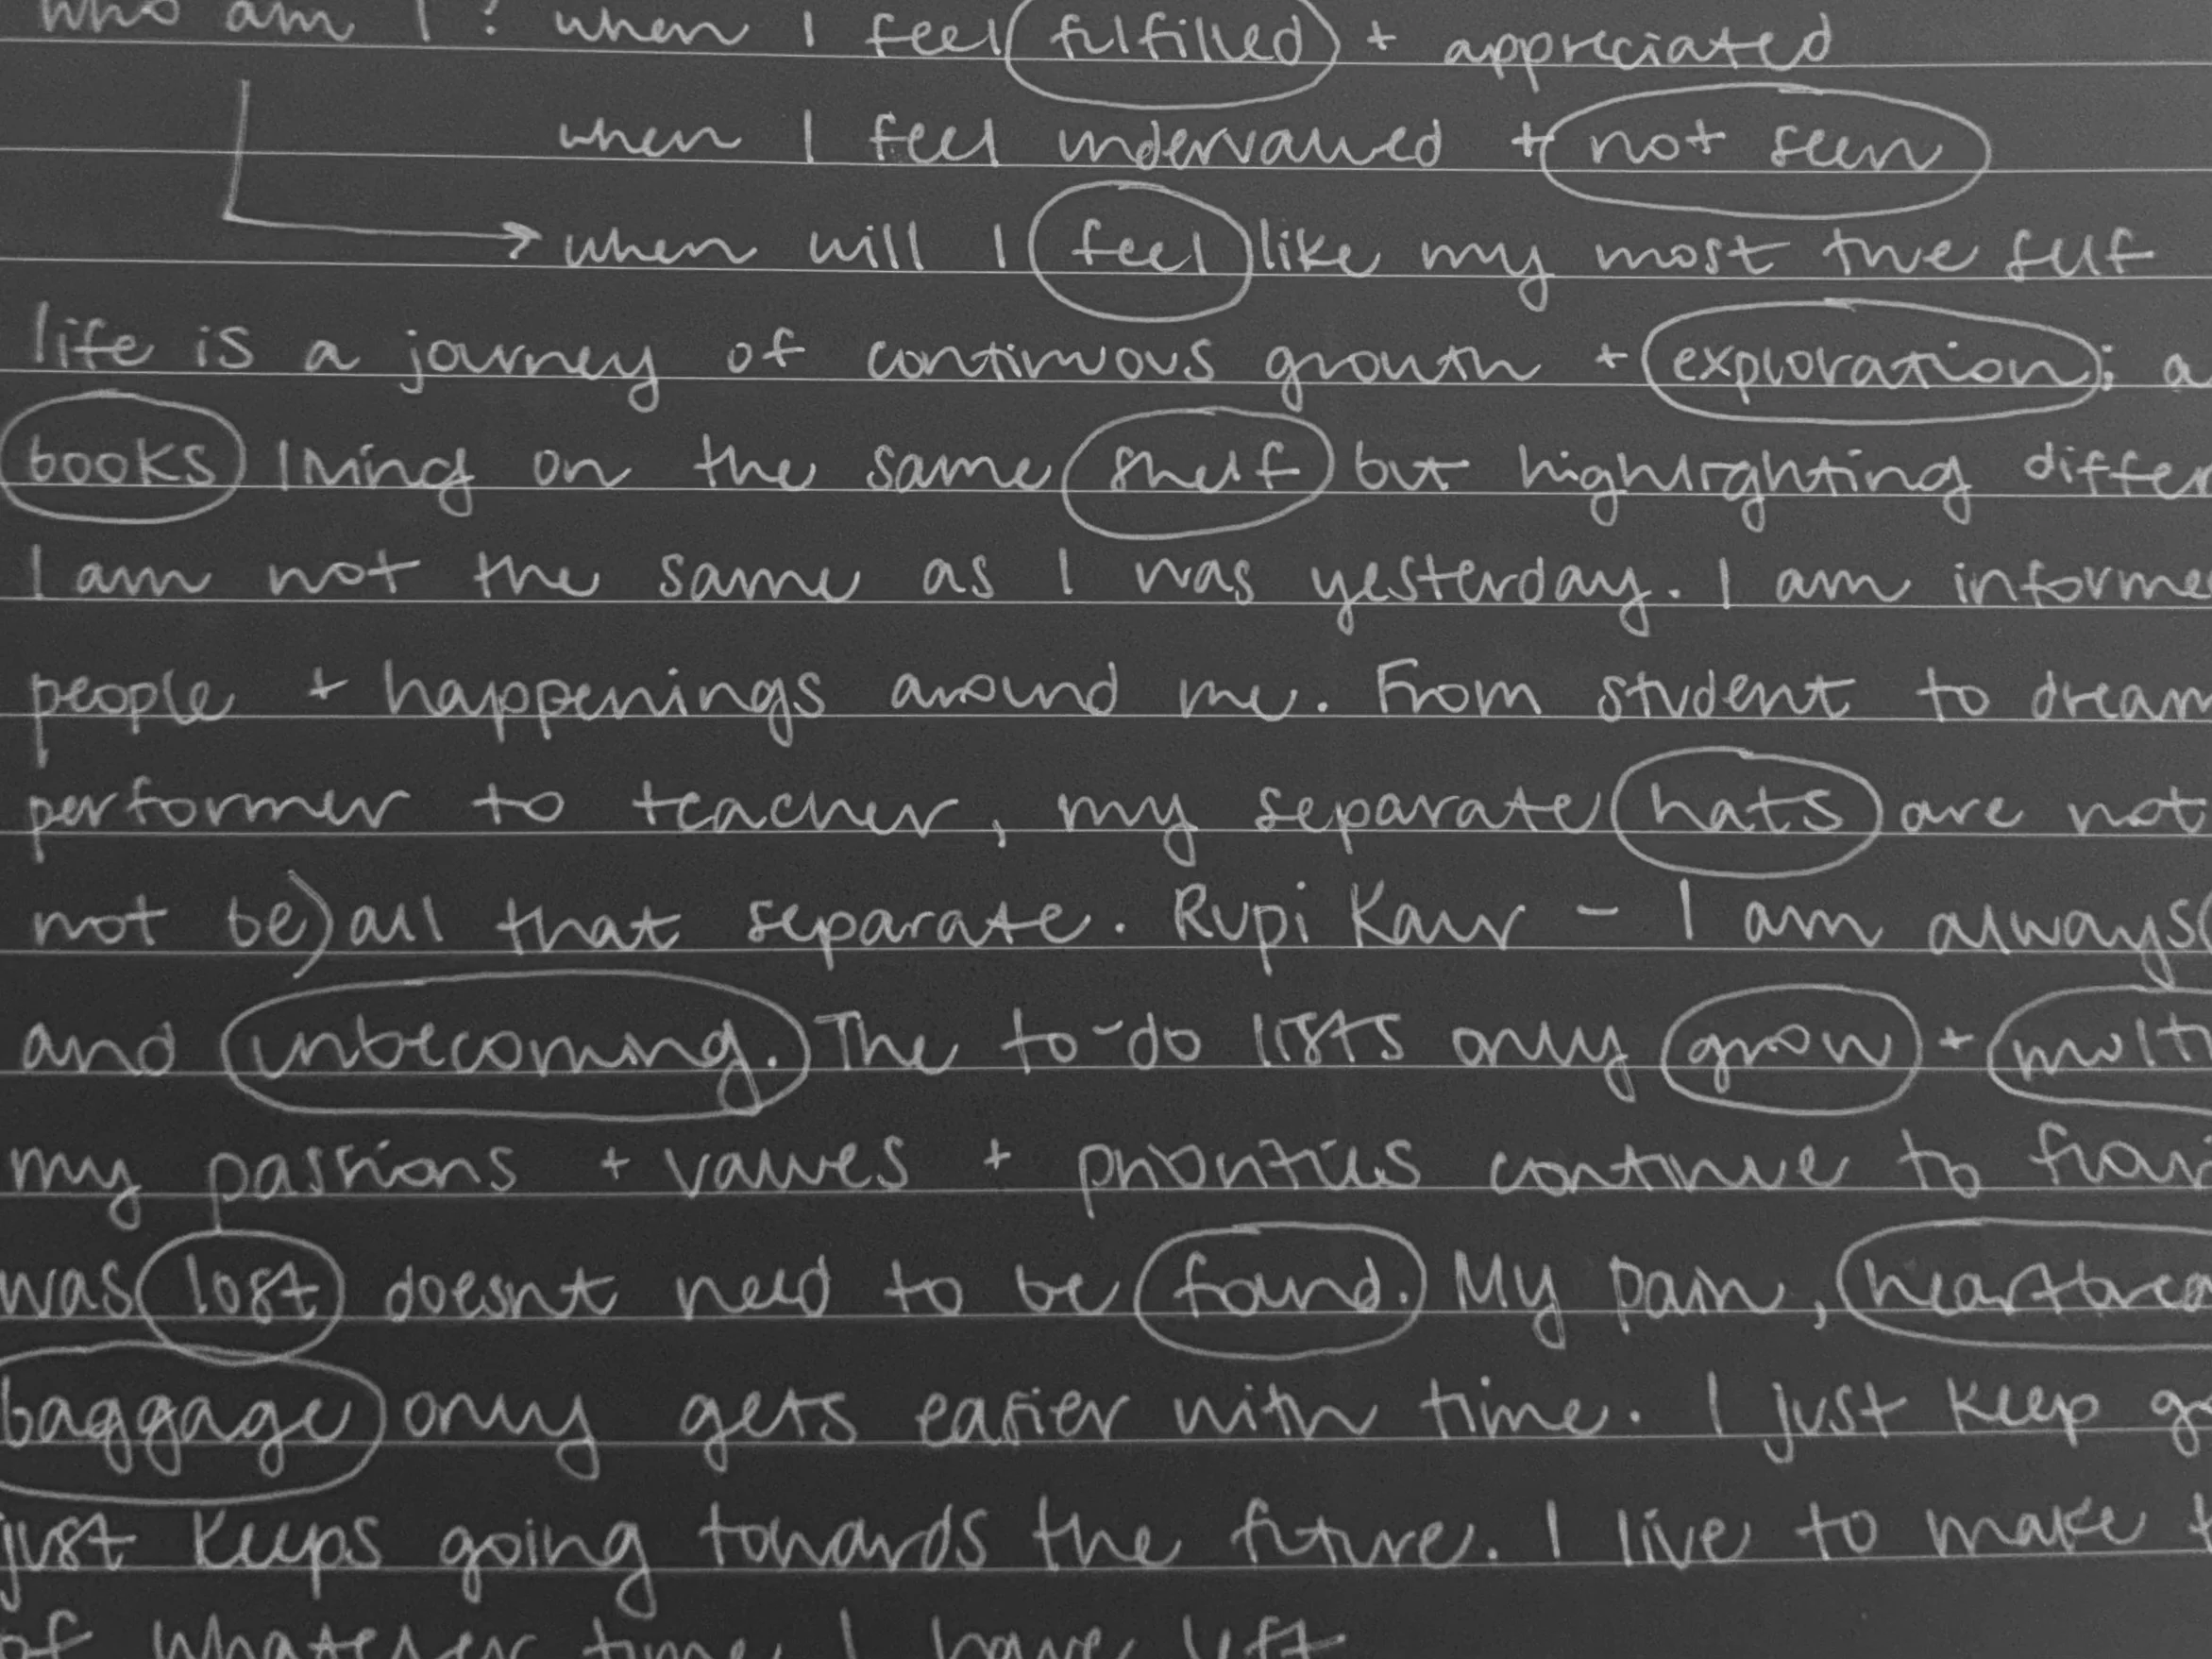 who am I? when I feel fulfilled + appreciated
when I feel undervalued + not seen
when will I feel like my most true self
life is a journey of continuous growth + exploration; a
books living on the same shelf but highlighting differ
I am not the same as I was yesterday. I am informe
people + happenings around me. From student to dream
performer to teacher, my separate hats are not
not be) all that separate. Rupi Kaur - I am always
and unbecoming. The to-do lists only grow + multi
my passions + values + priorities continue to
was lost doesnt need to be found. My pain, heartbrea
baggage only gets easier with time. I just keep go
just keeps going towards the future. I live to make t
of whatever time I have left